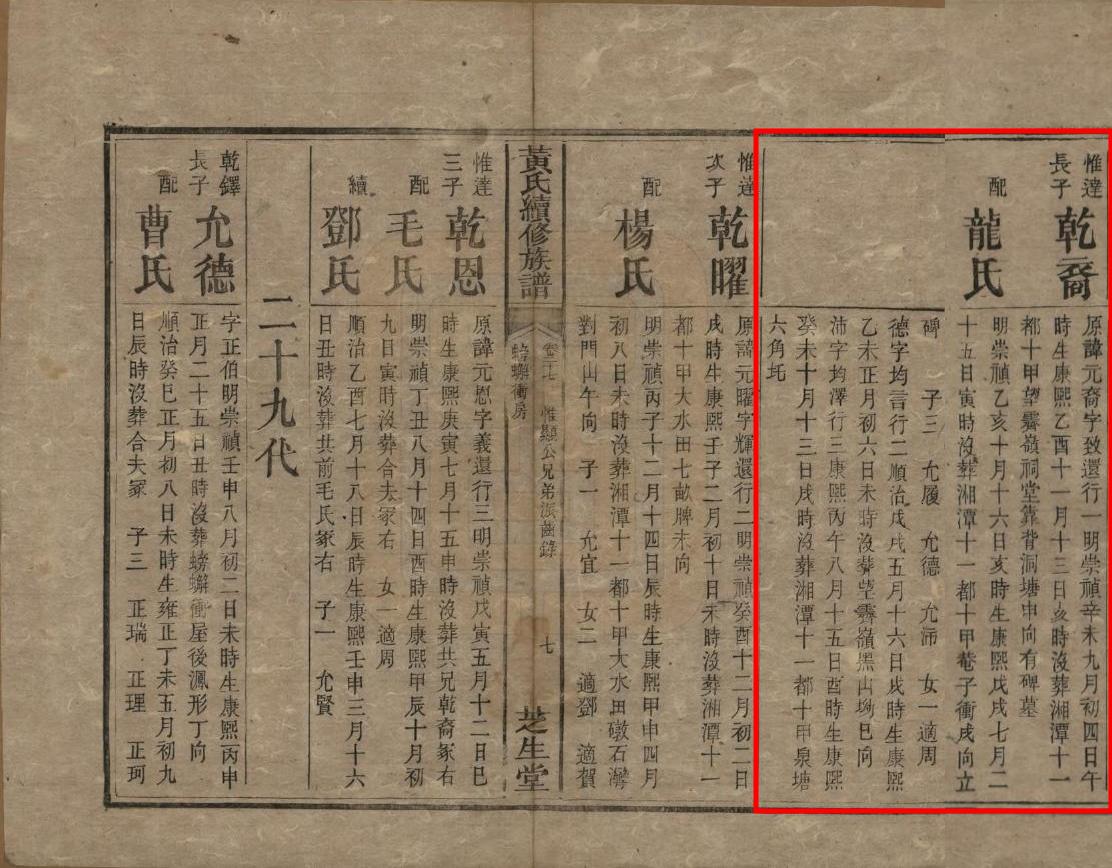 惟達
長子
乾裔
原諱元裔字致還行一明崇禎辛未九月初四日午
時生康熙乙酉十一月十三日亥時沒葬湘潭十一
都十甲望霽嶺祠堂靠背洞塘申向有碑墓
配
龍氏
明崇禎乙亥十月十六日亥時生康熙戊戌七月二
十五日寅時沒葬湘潭十一都十甲菴子衝戌向立
碑 子三 允履 允德 允沛 女一適周
德字均言行二順治戊戌五月十六日戌時生康熙
乙未正月初六日未時沒葬望霽嶺黑山坳巳向
沛字均澤行三康熙丙午八月十五日酉時生康熙
癸未十月十三日戌時沒葬湘潭十一都十甲泉塘
六角坨
惟達
次子
乾曜
原諱元曜字輝還行二明崇禎癸酉十二月初二日
戌時生康熙壬子二月初十日未時沒葬湘潭十一
都十甲大水田七畝脾未向
配
楊氏
明崇禎丙子十二月十四日辰時生康熙甲申四月
初八日未時沒葬湘潭十一都十甲大水田磤石灣
對門山午向 子一 允宜 女二 適鄧 適賀
黃氏續修族譜
卷三七 惟顯公兄弟派齒錄
螃蠏衝房
七
芝生堂
惟達
三子
乾恩
原諱元恩字義還行三明崇禎戊寅五月十二日巳
時生康熙庚寅七月十五申時沒葬共兄乾裔冢右
配
毛氏
明崇禎丁丑八月十四日酉時生康熙甲辰十月初
九日寅時沒葬合夫冢右 女一適周
續
鄧氏
順治乙酉七月十八日辰時生康熙壬申三月十六
日丑時沒葬共前毛氏冢右 子一 允賢
二十九代
乾鐸
長子
允德
字正伯明崇禎壬申八月初二日未時生康熙丙申
正月二十五日丑時沒葬螃蠏衝屋後溈形丁向
配
曹氏
順治癸巳正月初八日未時生雍正丁未五月初九
日辰時沒葬合夫冢 子三 正瑞 正理 正珂